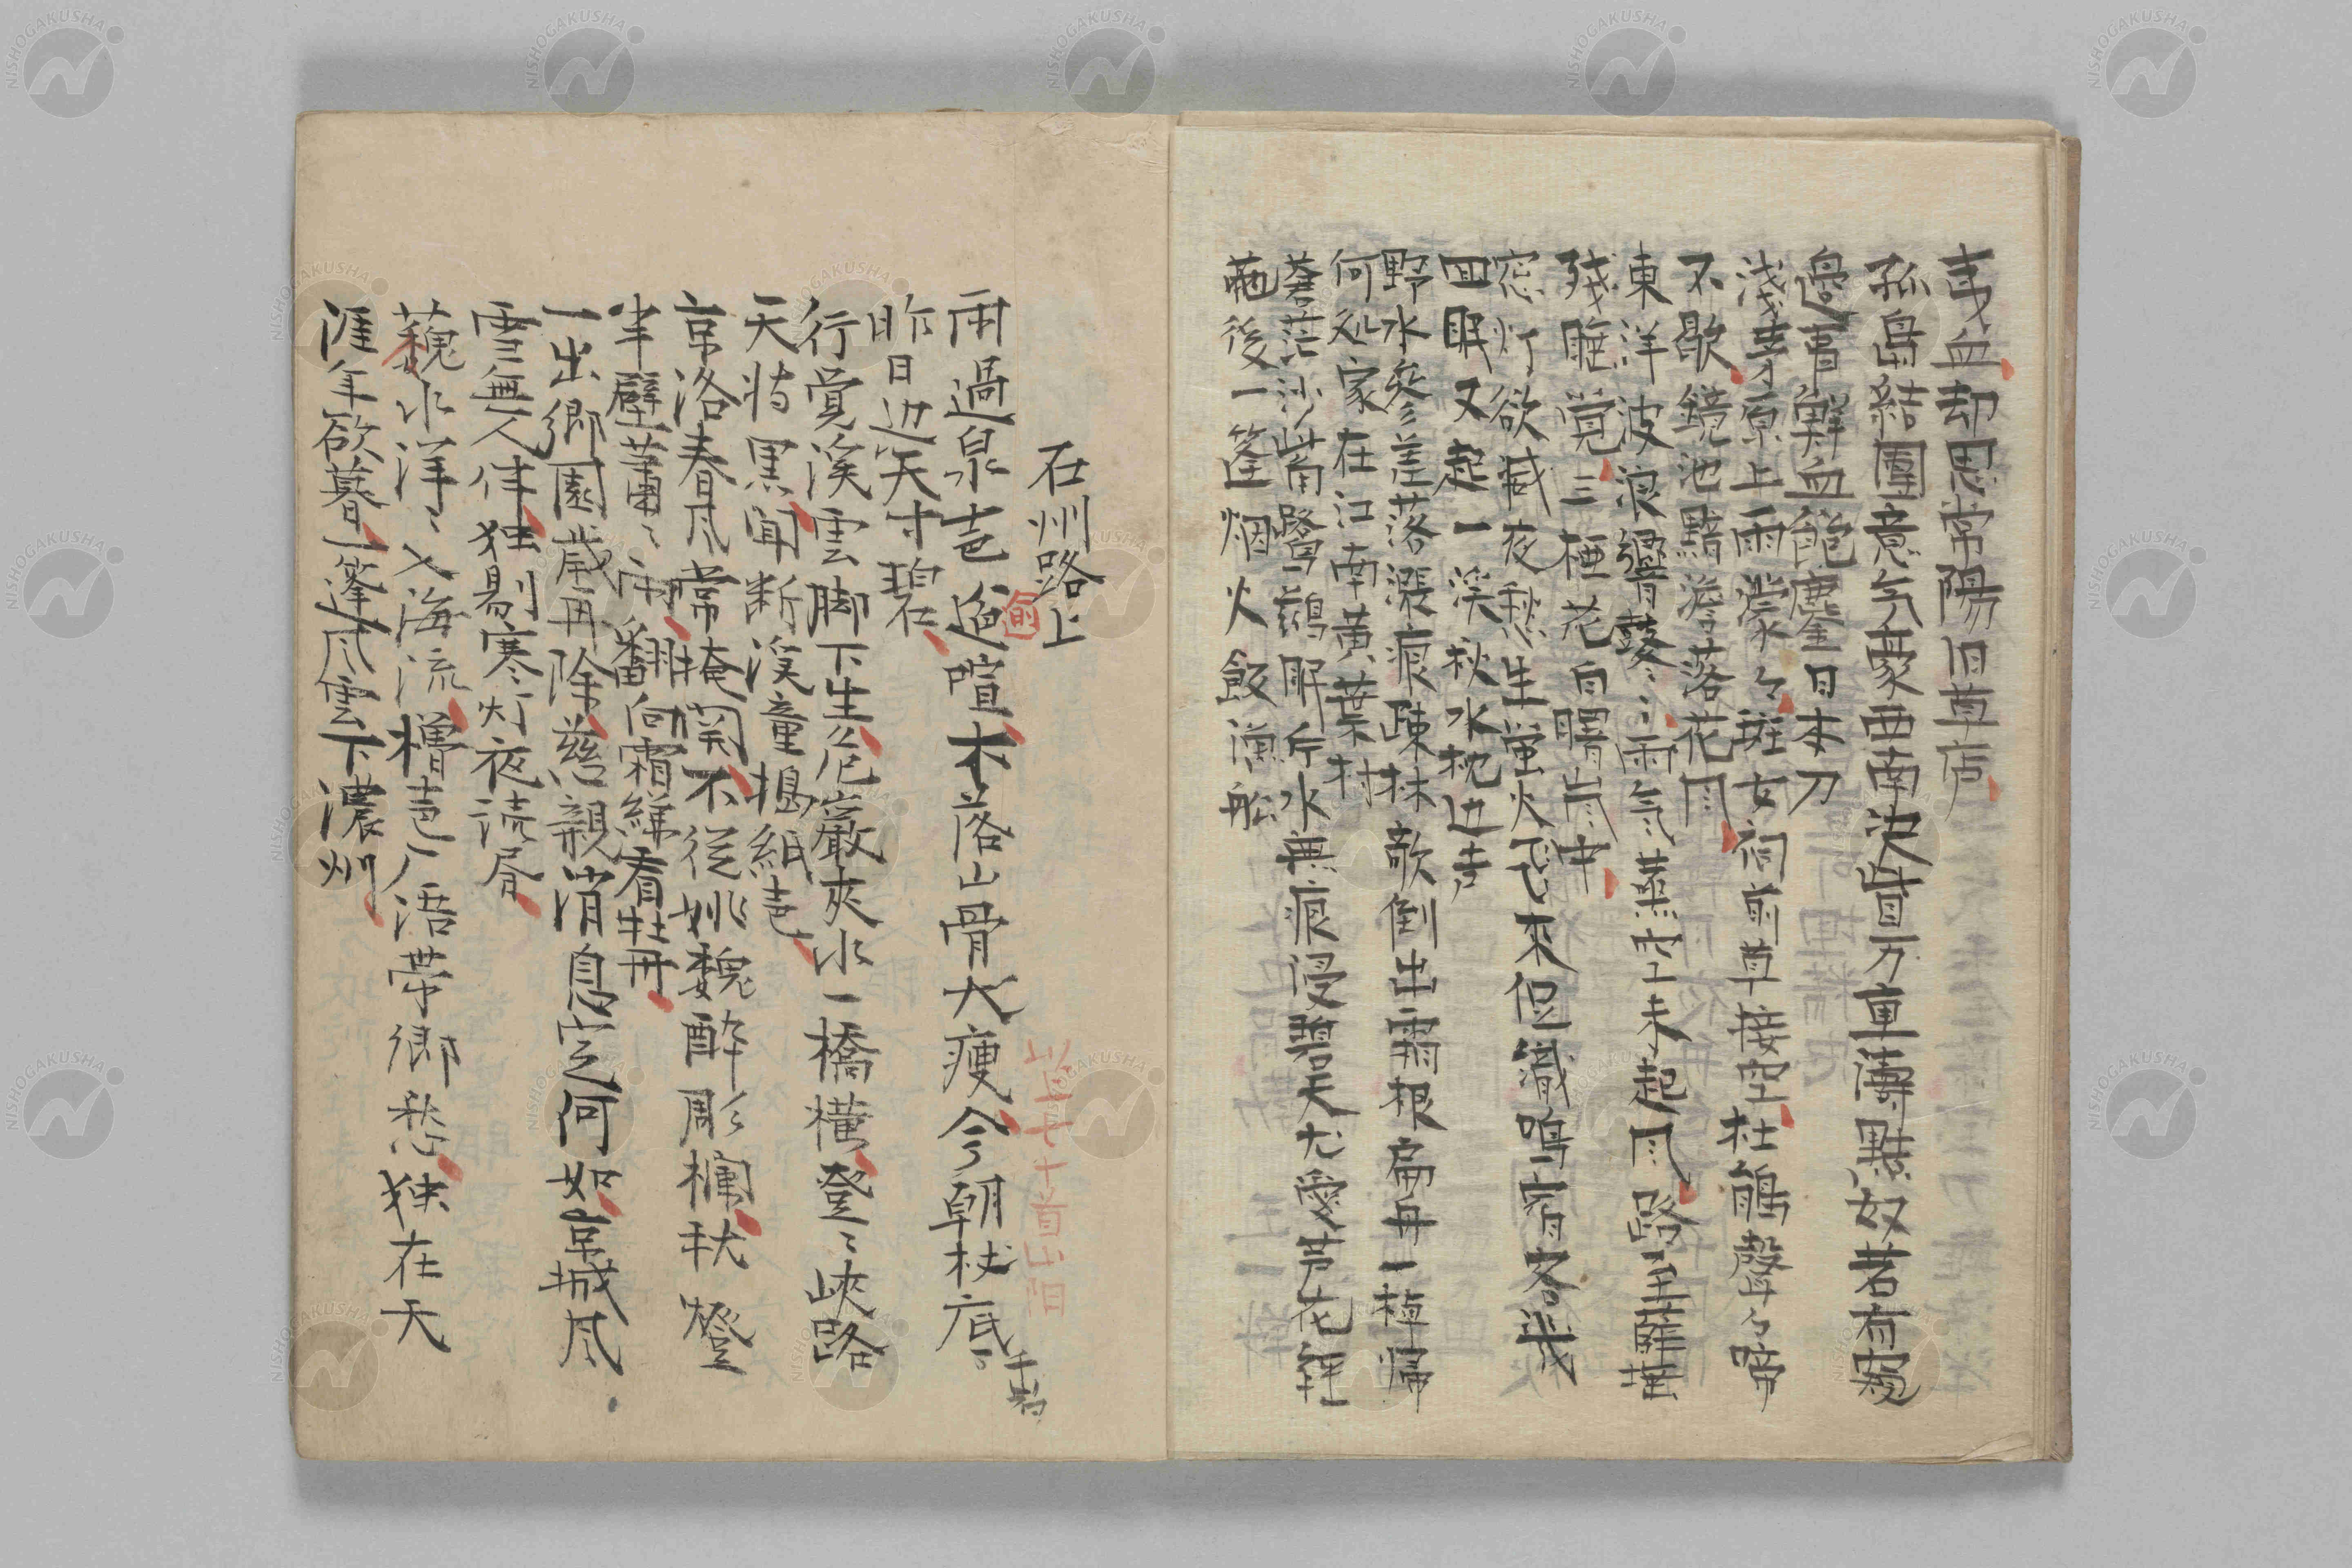 血却思常陽旧草店
孤島結團意気豪西南決眥万重薄黠奴若有窺
邊事鮮血能塵日本刀
浅茅原上雨濛々班女祠前草接空杜鵑聲々啼
不歇鏡池黯澹落花風
東洋波浪響鼕〻雨気蒸空未起風路
残睡覚三極花白曙嵐中
窓灯欲滅夜愁生蛍火飛来但識鳴宵客幾
回眠又起一渓秋水枕辺声
野水参差落漲痕疎林欹倒出霜根扁舟一棹帰
何処家在江南黄葉村
蒼茫沙觜鷺鷀眠斤水無痕浸碧天尤愛芦花
後一篷烟火飯漁船
石州路上
雨過泉声逾喧木落山骨尤痩今朝杖底〻
昨日辺天寸碧
行覚渓雲脚下生危巌夾水一橋横登〻峡路
天将黒聞断渓童搗紙声
京洛春風常掩関不従姚魏酔彫欄秋燈
半壁蕭〻雨翻向霜縑看牡丹
一出郷園歳再除慈親消息定何如京城風
雪無人伴独剔寒灯夜読書
巍水洋〻入海流櫓声人語帯郷愁独在天
涯年欲暮一篷風雲下濃州
逾
此上七十首山陽